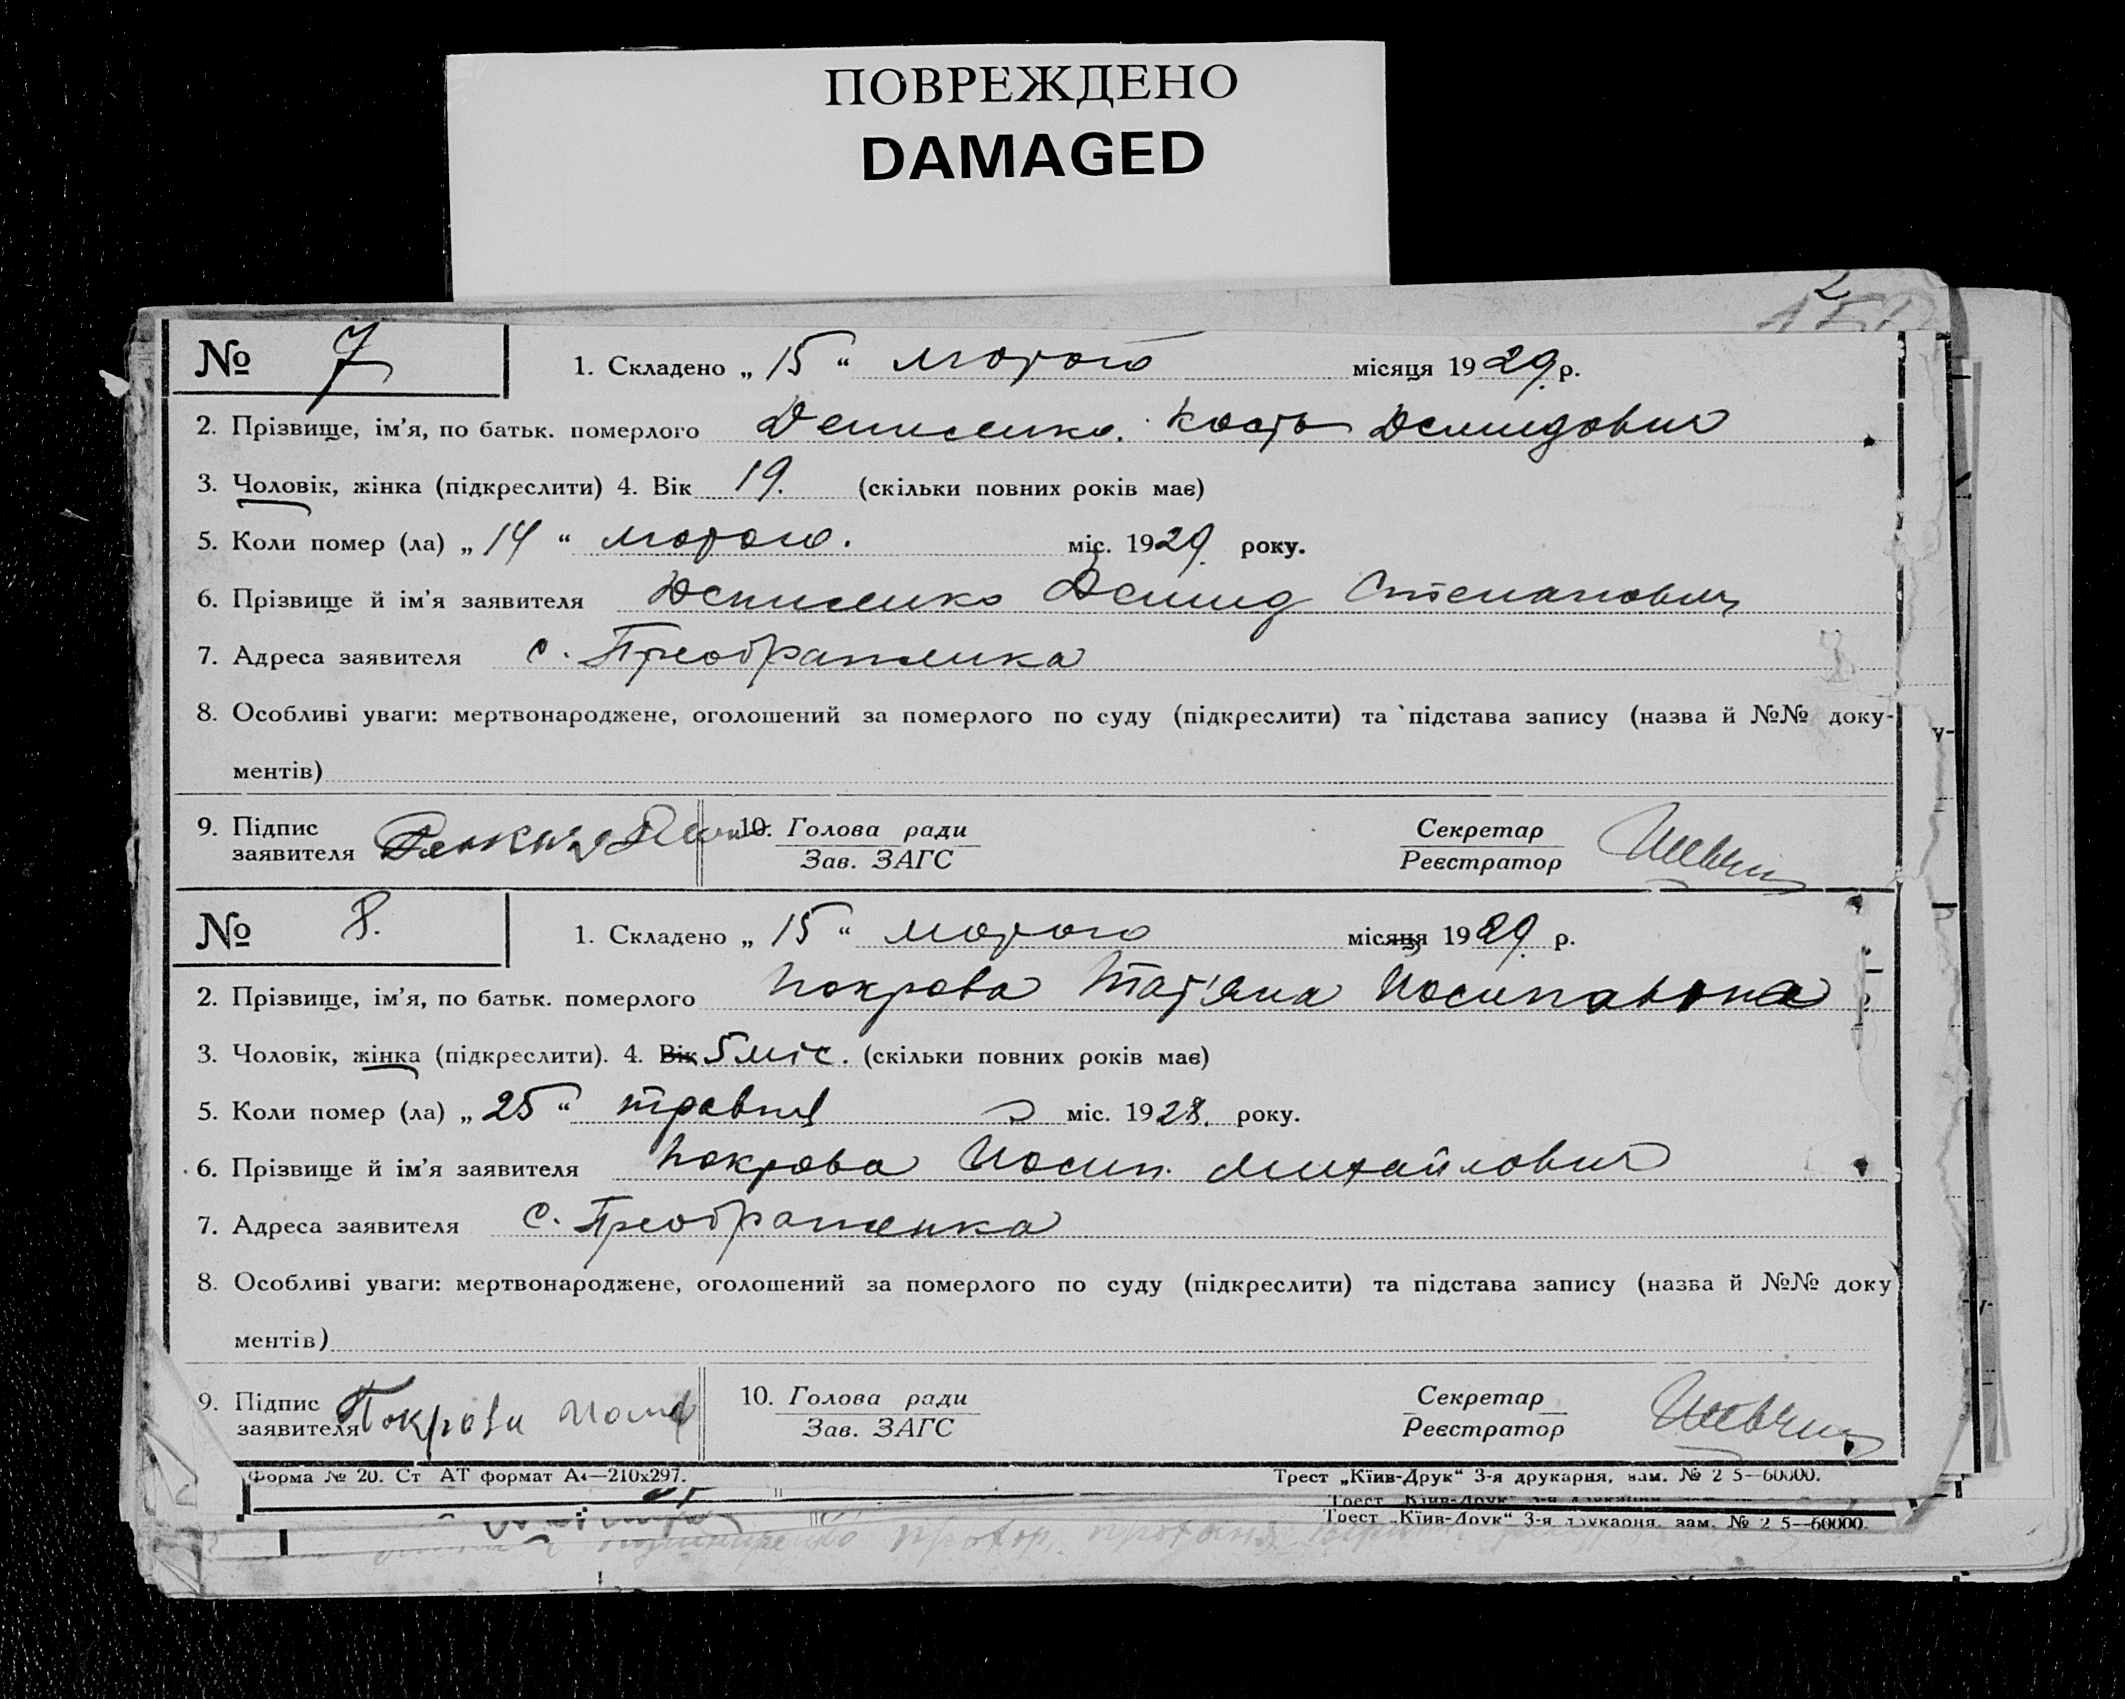 ПОВРЕЖДЕНО
DAMAGED
№ 7
1. Складено „ 15 “ лютого місяця 1929 р.
2. Прізвище, ім’я, по батьк. померлого Кость Демидович
3. Чоловік, жінка (підкреслити) 4. Вік 19. (скільки повних років має)
5. Коли помер (ла) „ 14 “ лютого. міс. 1929. року.
6. Прізвище й ім’я заявителя Демид Степанович
7. Адреса заявителя с. Преображенка
8. Особливі уваги: мертвонароджене, оголошений за померлого по суду (підкреслити) та підстава запису (назва й №№ доку-
ментів)
9. Підпис
заявителя
10. Голова ради
Зав. ЗАГС
Секретар
Реєстратор
№ 8.
1. Складено „ 15 “ лютого місяця 1929. р.
2. Прізвище, ім’я, по батьк. померлого Покрова Тат’яна Йосипавна
3. Чоловік, жінка (підкреслити). 4. Вік 5 міс. (скільки повних років має)
5. Коли помер (ла) „ 25 “ травня міс. 1928. року.
6. Прізвище й ім’я заявителя Покрова Йосип Михайлович
7. Адреса заявителя с. Преображенка
8. Особливі уваги: мертвонароджене, оголошений за померлого по суду (підкреслити) та підстава запису (назва й №№ доку
ментів)
9. Підпис
заявителя Покрова
10. Голова ради
Зав. ЗАГС
Секретар
Реєстратор
Форма № 20. Ст АТ формат А4—210х297.
Трест „Київ-Друк“ 3-я друкарня, зам. № 2 5—60000.
Трест „Київ-Друк“ 3-я друкарня, зам. № 2 5—60000.